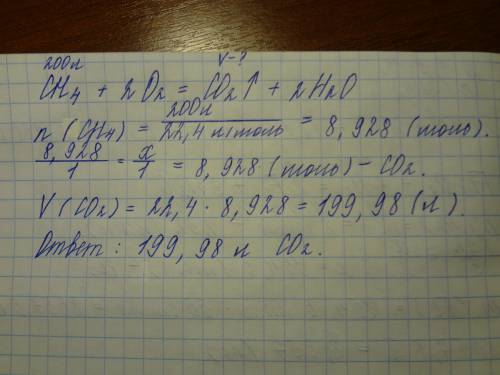 200л V-?
CH4 + 2O2 = CO2↑ + 2H2O
n (CH4) = 200л / 22,4 л/моль = 8,928 (моль).
8,928 / 1 = x / 1 = 8,928 (моль) - CO2.
V(CO2) = 22,4 · 8,928 = 199,98 (л).
Ответ: 199,98 л CO2.